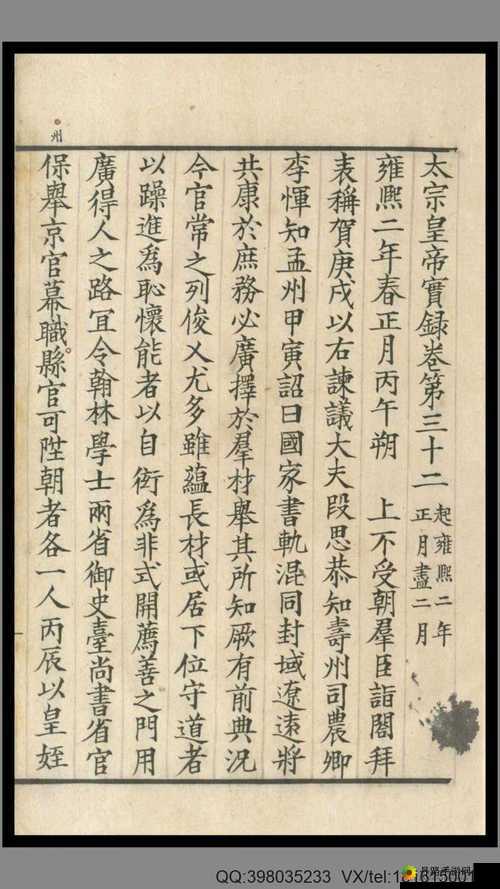 太宗皇帝實録卷第三十二 起雍熙二年正月盡二月
雍熙二年春正月丙午朔 上不受朝羣臣詣閤拜
表稱賀庚戌以右諫議大夫段思恭知壽州司農卿
李惲知孟州甲寅詔曰國家書軌混同封域遼遠將
共康於庶務必廣擇於羣材舉其所知厥有前典況
今官常之列俊乂尤多雖蘊長材或居下位守道者
以躁進為恥懷能者以自衒為非式開薦善之門用
廣得人之路冝令翰林學士兩省御史臺尚書省官
保舉京官幕職縣官可陞朝者各一人丙辰以皇姪
州
QQ:398035233 VX/tel: